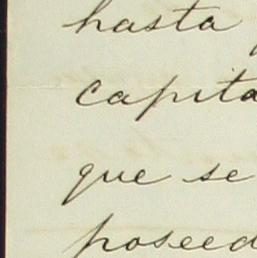 hasta
capita
que se
poseed